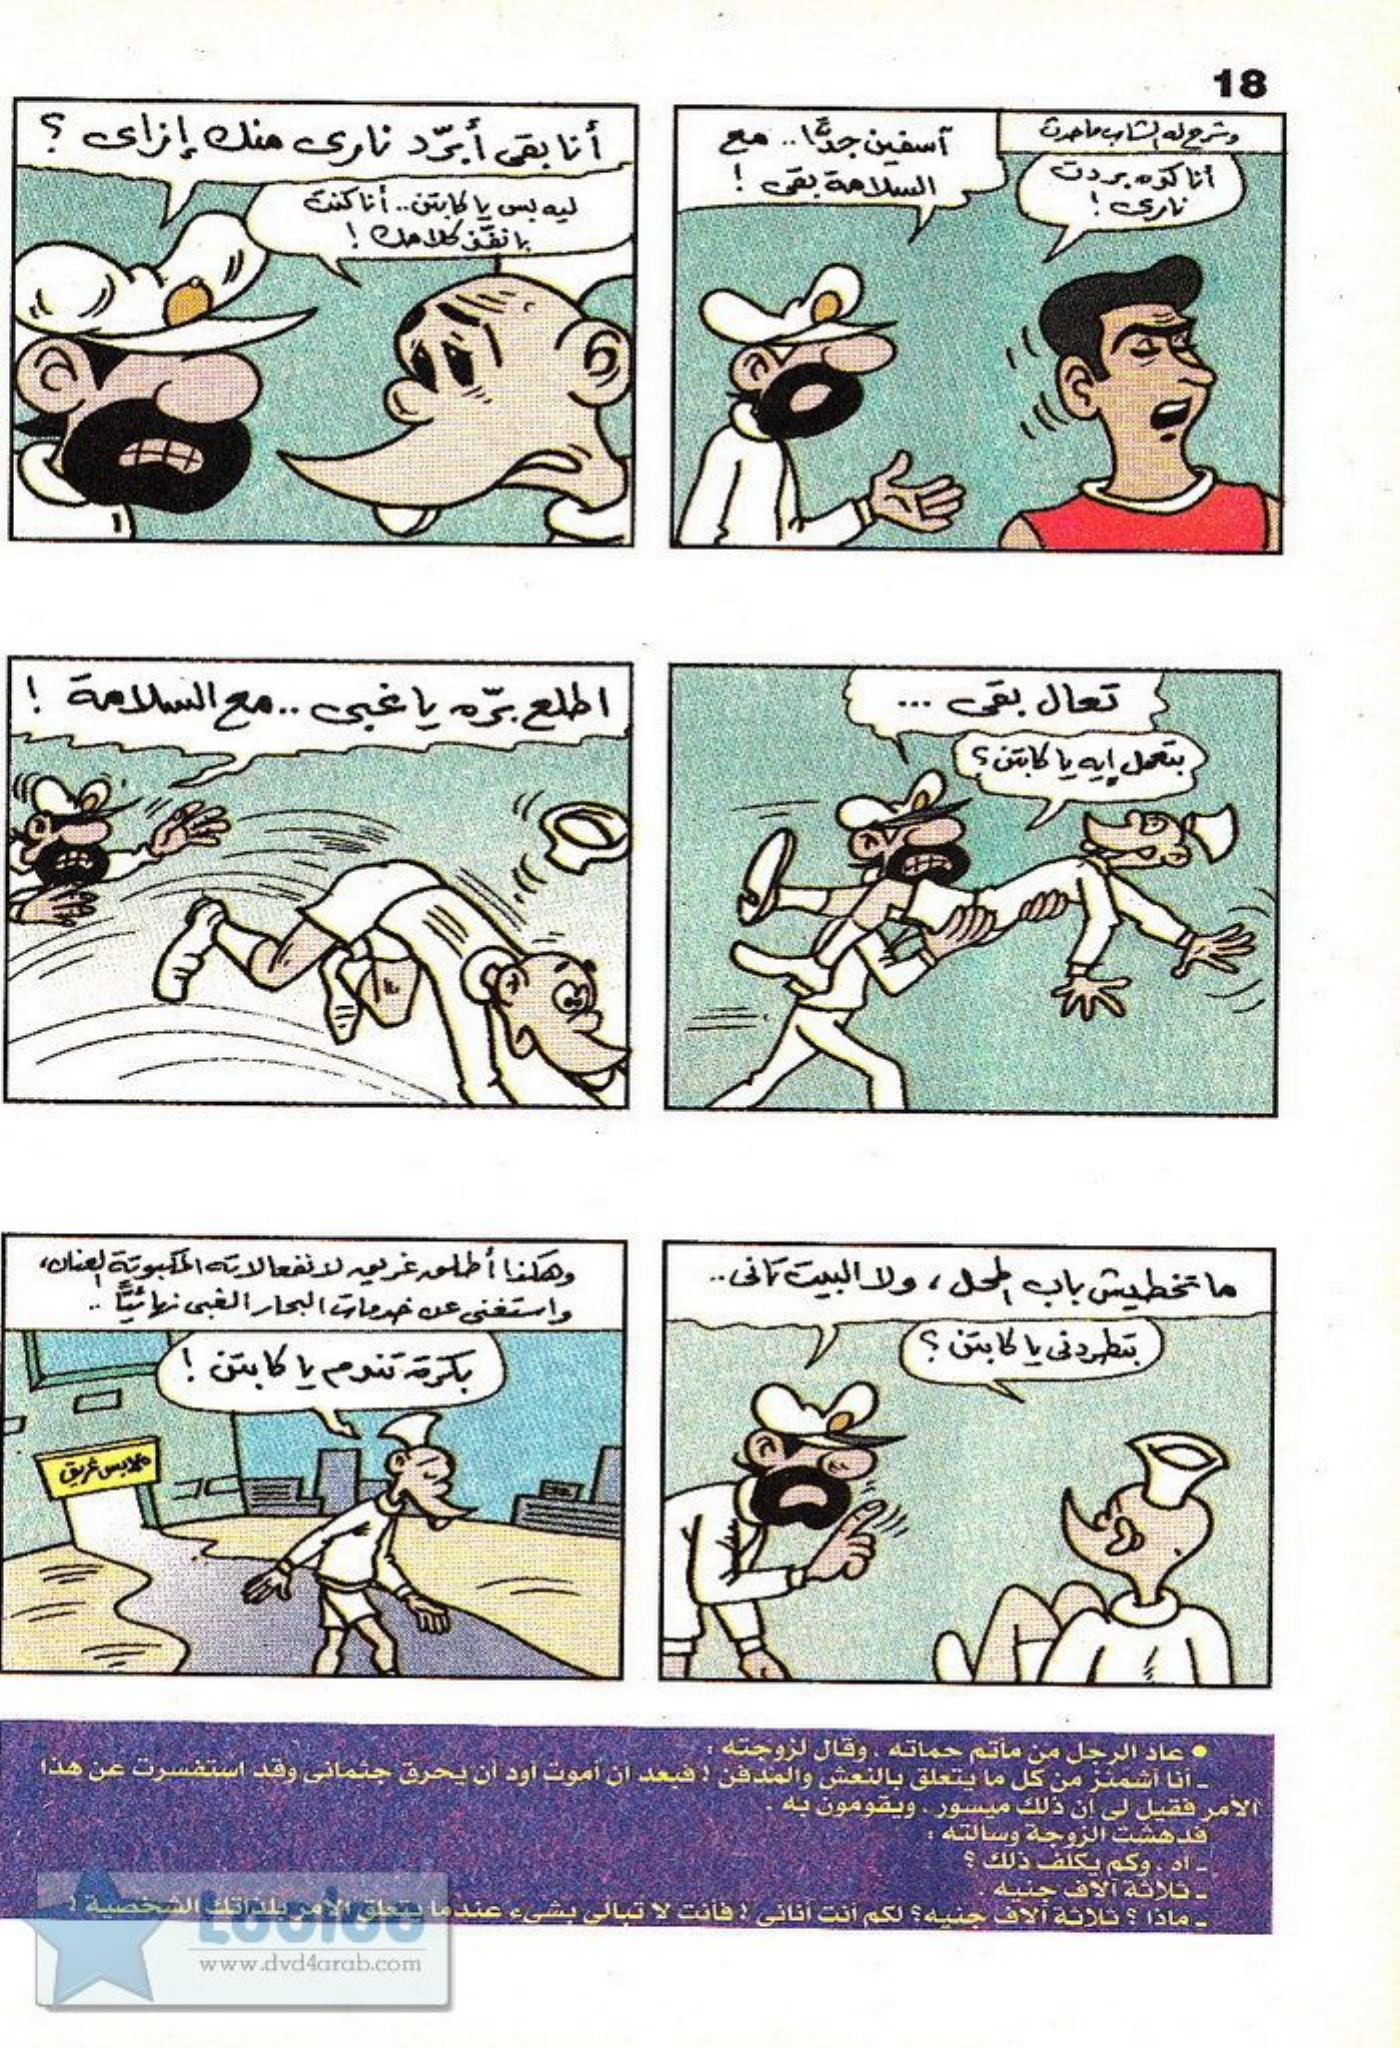 18
وشرح له الشاب ما حدث
أنا كده بردت
نارى !
آسفين جدًّا .. مع
السلامة بقى !
أنا بقى أبرّد نارى منك إزاى ؟
ليه بس يا كابتن .. أنا كنت
بانفّذ كلامك !
تعال بقى ...
بتعمل إيه يا كابتن ؟
اطلع برّه يا غبى .. مع السلامة !
ما تخطيش باب المحل ، ولا البيت تانى ..
بتطردنى يا كابتن ؟
وهكذا أطلق غريق لانفعالاته المكبوتة العنان ،
واستغنى عن خدمات البحار الغبى نهائيًّا ..
بكرة تندم يا كابتن !
ملابس غريق
● عاد الرجل من مأتم حماته ، وقال لزوجته :
ـ أنا أشمئز من كل ما يتعلق بالنعش والمدفن ! فبعد أن أموت أود أن يحرق جثمانى وقد استفسرت عن هذا
الأمر فقيل لى إن ذلك ميسور ، ويقومون به .
فدهشت الزوجة وسألته :
ـ آه ، وكم يكلف ذلك ؟
ـ ثلاثة آلاف جنيه .
ـ ماذا ؟ ثلاثة آلاف جنيه؟ لكم أنت أنانى ! فأنت لا تبالى بشىء عندما يتعلق الأمر بلذاتك الشخصية !
www.dvd4arab.com